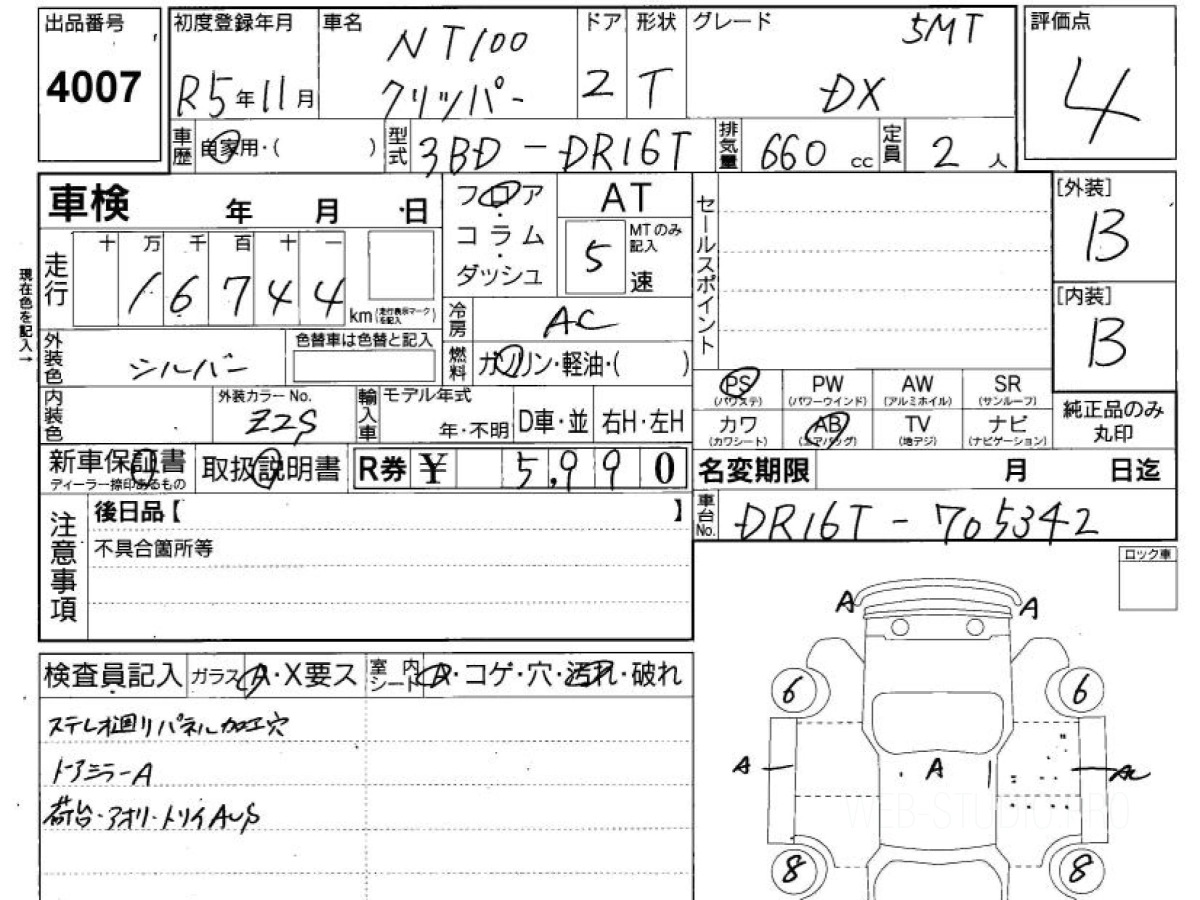 出品番号
4007
初度登録年月
R5年11月
車名
NT100
クリッパー
ドア
2
形状
T
グレード
5MT
DX
評価点
4
車歴
自家用・( )
型式
3BD-DR16T
排気量
660 cc
定員
2 人
車検 年 月 日
フロア
コラム
ダッシュ
AT
5
MTのみ記入
速
セールスポイント
[外装]
B
[内装]
B
現在色を記入→
走行
十 万 千 百 十 一
16744
km (走行表示マークを記入)
冷房
AC
外装色
シルバー
色替車は色替と記入
燃料
ガソリン・軽油・( )
PS
(パワステ)
PW
(パワーウインド)
AW
(アルミホイル)
SR
(サンルーフ)
カワ
(カワシート)
AB
(エアバッグ)
TV
(地デジ)
ナビ
(ナビゲーション)
純正品のみ
丸印
内装色
外装カラーNo.
Z2S
輸入車
モデル年式
年・不明
D車・並
右H・左H
新車保証書
ディーラー捺印あるもの
取扱説明書
R券 ¥ 5,990
名変期限 月 日迄
車台No.
DR16T-705342
注意事項
後日品【 】
不具合箇所等
ロック車
検査員記入
ガラス A・X要ス
室内シート A・コゲ・穴・汚れ・破れ
ステレオ廻りパネル加工穴
ドアミラーA
荷台・アオリ・トリイAUS
A
A
6
6
A
A
8
8
WEB-STUDIO.PRO